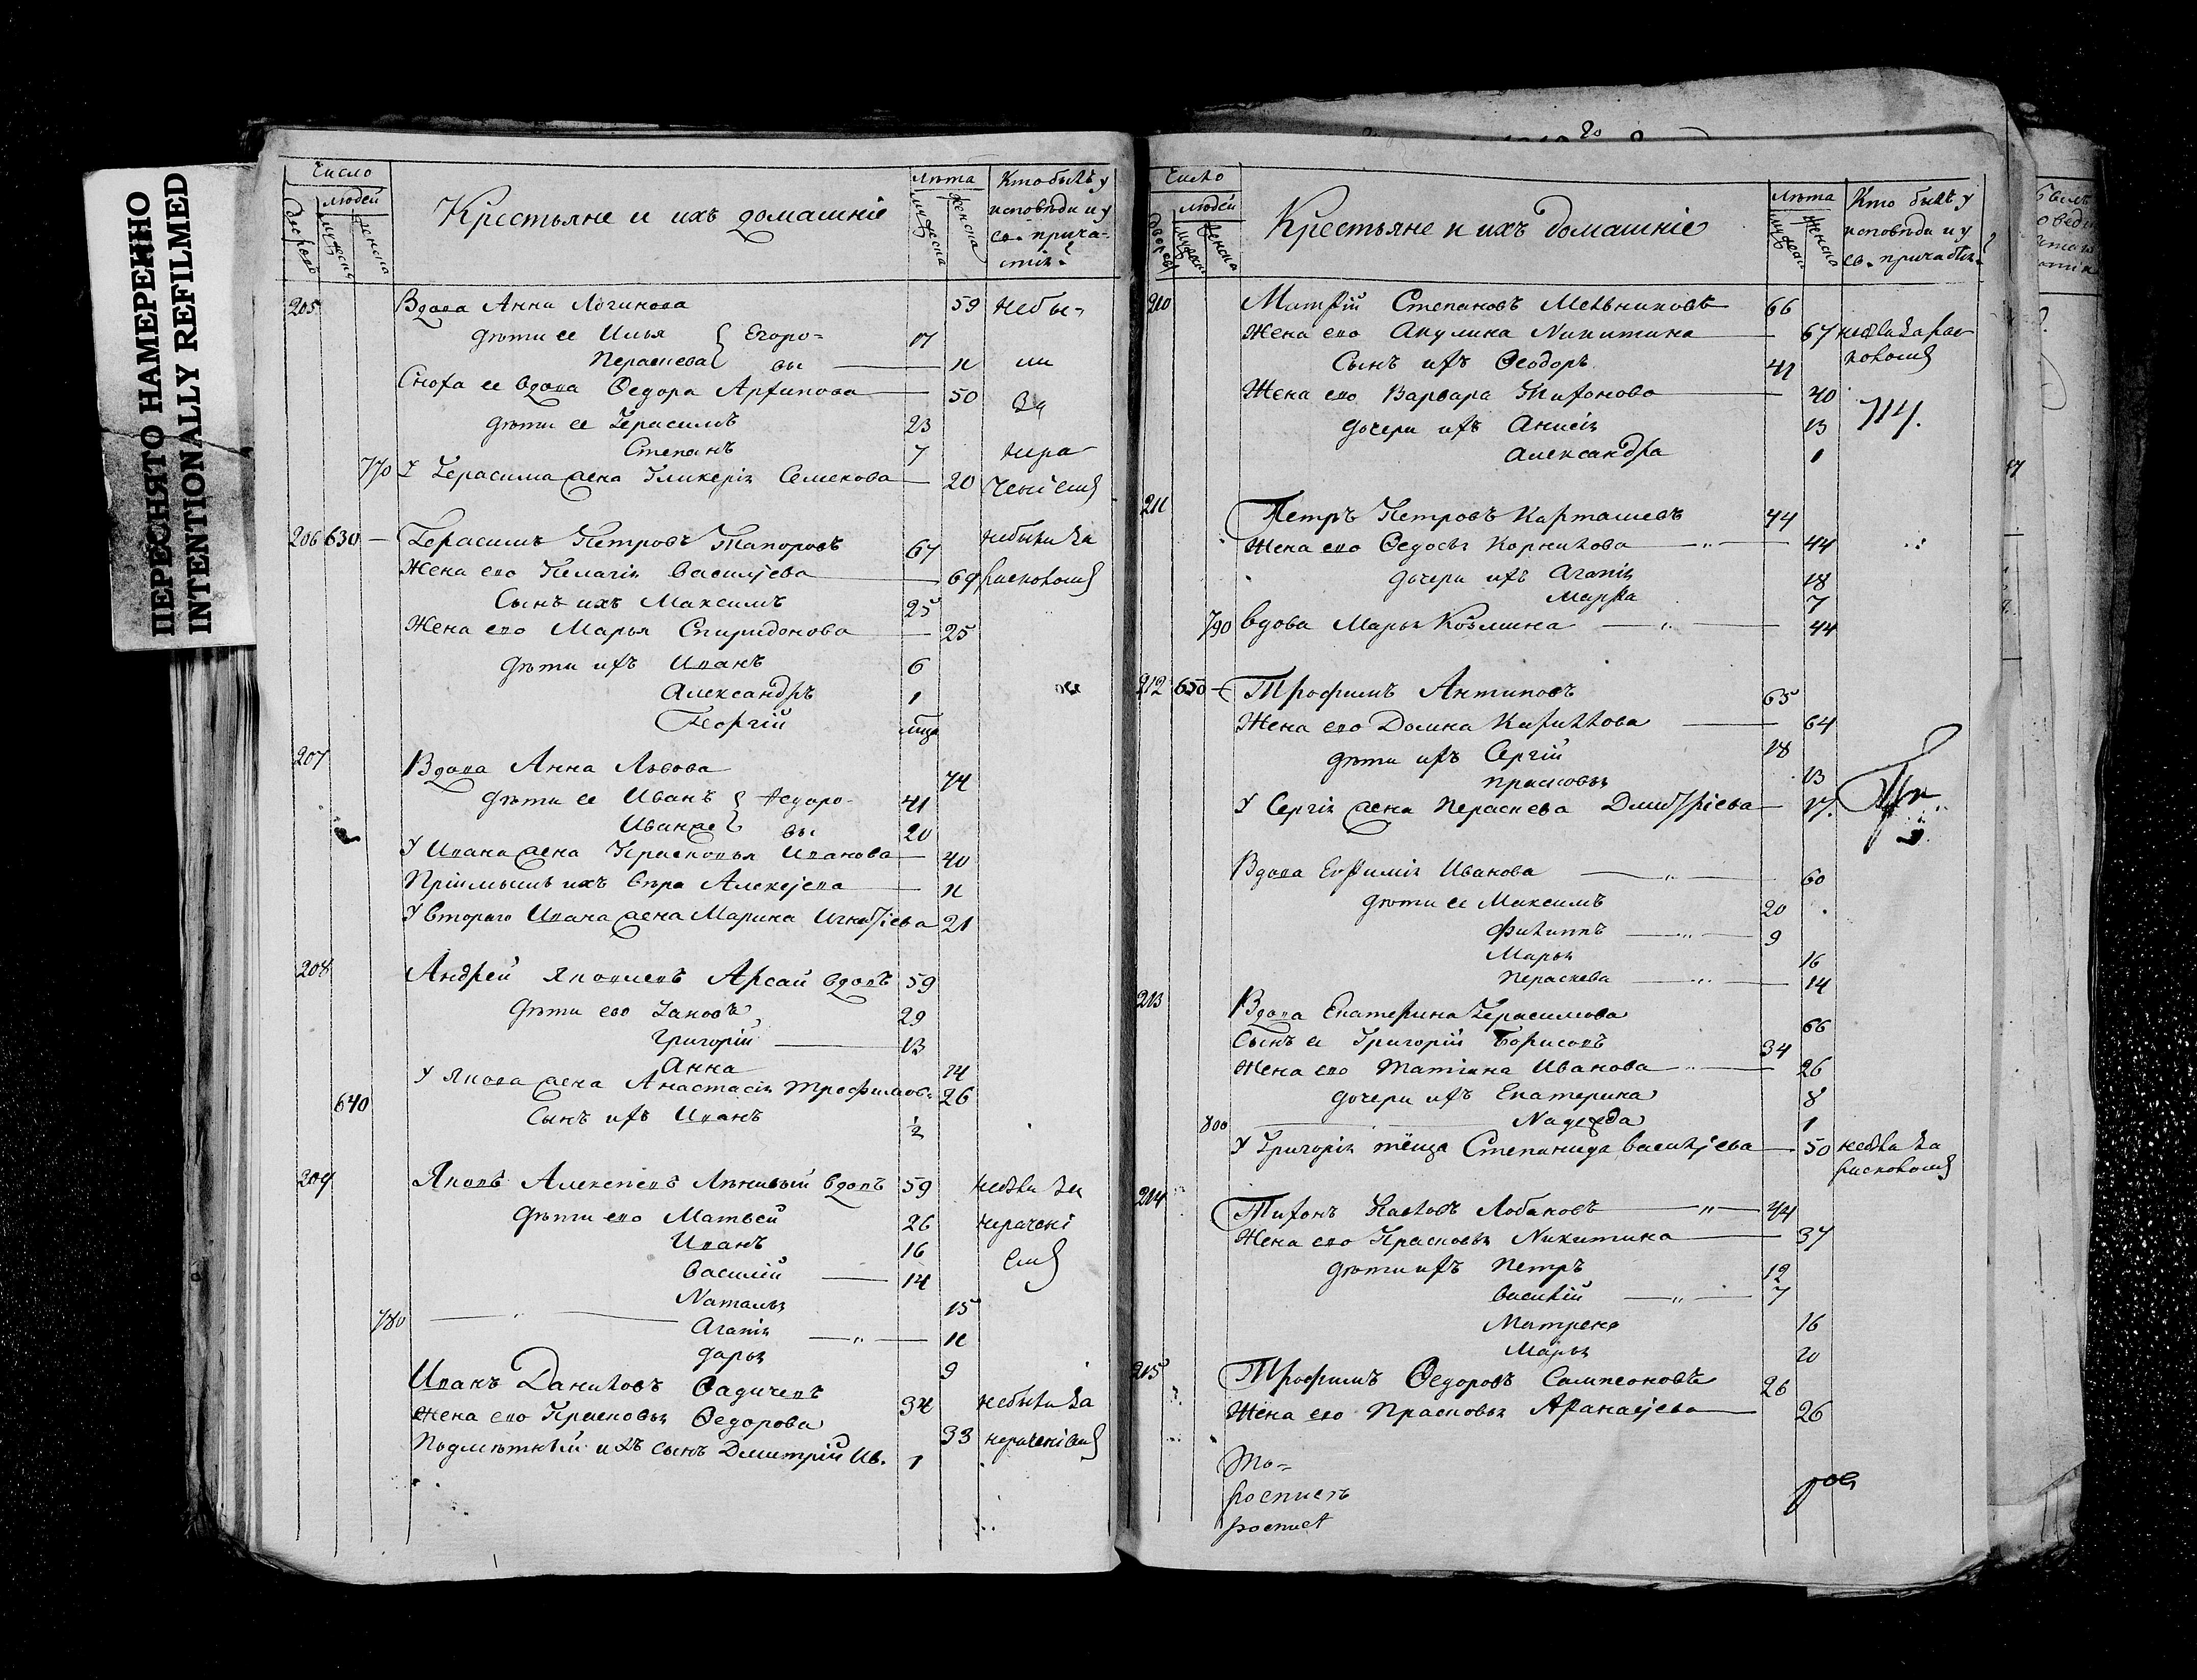 ПЕРЕСНЯТО НАМЕРЕННО
INTENTIONALLY REFILMED
Число
людей
Крестьяне и ихъ домашніе
лѣта
Кто былъ у
исповѣди и у
св. прича-
стія?
205 Вдова Анна Логинова 59 небы-
дѣти ее Илья Егоро- 17
Параскева вы 11 ли
Сноха ее вдова Ѳедора Архипова 50 за
дѣти ее Герасимъ 23
Степанъ 7 нера
770 У Герасима жена Гликерія Семенова 20 ченіемъ
206 630 Герасимъ Петровъ Тапоровъ 67 небыли за
Жена его Пелагія Василіева 69 расколомъ
Сынъ ихъ Максимъ 25
Жена его Марья Спиридонова 25
дѣти ихъ Иванъ 6
Александръ 1
Георгій
207 Вдова Анна Львова 74
дѣти ее Иванъ Ѳедоро- 41
Иванже вы 20
У Ивана жена Прасковья Иванова 40
Пріимышъ ихъ Вѣра Алексіева 11
У втораго Ивана жена Марина Игнатіева 21
208 Андрей Яковлевъ Арсай вдовъ 59
дѣти его Іаковъ 29
Григорій 13
Анна 14
У Якова жена Анастасія Трофимов: 26
640 Сынъ ихъ Иванъ 1/2
209 Яковъ Алексѣевъ Лѣнивый вдовъ 59 небыли за
дѣти его Матвей 26 нерачені
Иванъ 16 емъ
Василій 14
Наталья 15
780 Агапія 11
Дарья 9
Иванъ Даниловъ Ѳадичевъ 34 небыли за
Жена его Прасковья Ѳедорова 33 нераченіемъ
Подлѣтній ихъ сынъ Дмитрій Ив. 1
Число
людей
Крестьяне и ихъ домашніе
лѣта
Кто былъ у
исповѣди и у
св. причастія?
210 Матѳій Степановъ Мельниковъ 66
Жена его Акулина Никитина 67 небыли за рас
Сынъ ихъ Ѳеодоръ 41 коломъ
Жена его Варвара Тихонова 40
дочери ихъ Анисія 13 714.
Александра 1
211 Петръ Петровъ Карташевъ 44
Жена его Ѳедосья Корнилова 44
дочери ихъ Агапія 18
Марѳа 7
790 вдова Марья Козмина 44
212 650 Трофимъ Антиповъ 65
Жена его Домна Кирилова 64
дѣти ихъ Сергій 18
Прасковья 13
У Сергія жена Параскева Дмитріева 17.
Вдова Евфимія Иванова 60
дѣти ее Максимъ 20
Филиппъ 9
Марья 16
Параскева 14
213 Вдова Екатерина Герасимова 66
Сынъ ея Григорій Борисовъ 34
Жена его Татіана Иванова 26
дочери ихъ Екатерина 8
800 Надежда 1
У Григорія тёща Степанида Василіева 50 небыла за
расколомъ
214 Тихонъ Павловъ Лобановъ 44
Жена его Прасковья Никитина 37
дѣти ихъ Петръ 12
Василій 7
Матрена 16
Марья 20
215 Трофимъ Ѳедоровъ Сампсоновъ 26
Жена его Прасковья Аѳанасіева 26
То-
роспись